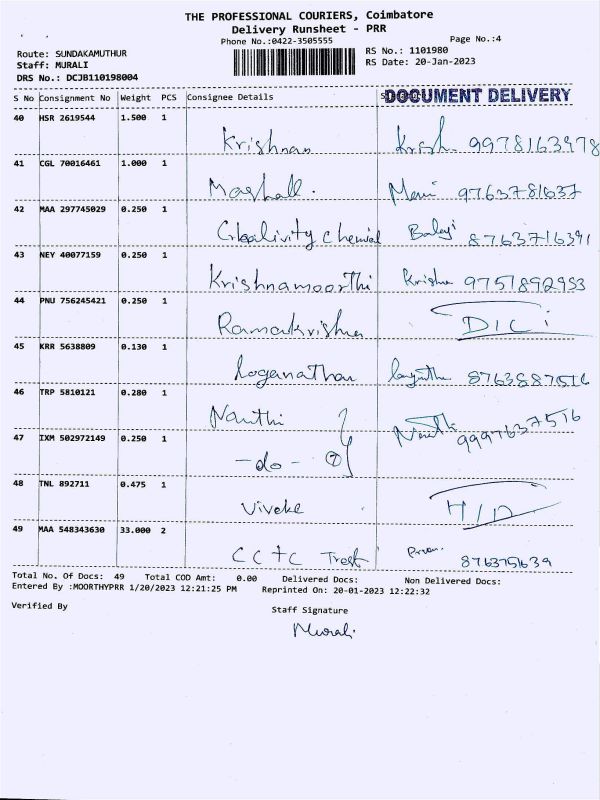 THE PROFESSIONAL COURIERS, Coimbatore
Delivery Runsheet - PRR
Phone No.:0422-3505555
Page No.:4
Route: SUNDAKAMUTHUR
RS No.: 1101980
Staff: MURALI
RS Date: 20-Jan-2023
DRS No.: DCJB110198004
S No Consignment No Weight PCS Consignee Details
DOCUMENT DELIVERY
40 HSR 2619544 1.500 1
Krishnan Krish 9978163978
41 CGL 70016461 1.000 1
Mani 9763781637
42 MAA 297745029 0.250 1
Balaji 8763716391
43 NEY 40077159 0.250 1
Krishnamoorthi Krishna 9751892953
44 PNU 756245421 0.250 1
Ramakrishna
45 KRR 5638809 0.130 1
Loganathan 8763887516
46 TRP 5810121 0.280 1
Nanthi 9997637516
47 IXM 502972149 0.250 1
-do-
48 TNL 892711 0.475 1
Viveke
49 MAA 548343630 33.000 2
876375639
Total No. Of Docs: 49 Total COD Amt: 0.00 Delivered Docs: Non Delivered Docs:
Entered By :MOORTHYPRR 1/20/2023 12:21:25 PM Reprinted On: 20-01-2023 12:22:32
Verified By
Staff Signature
Murali